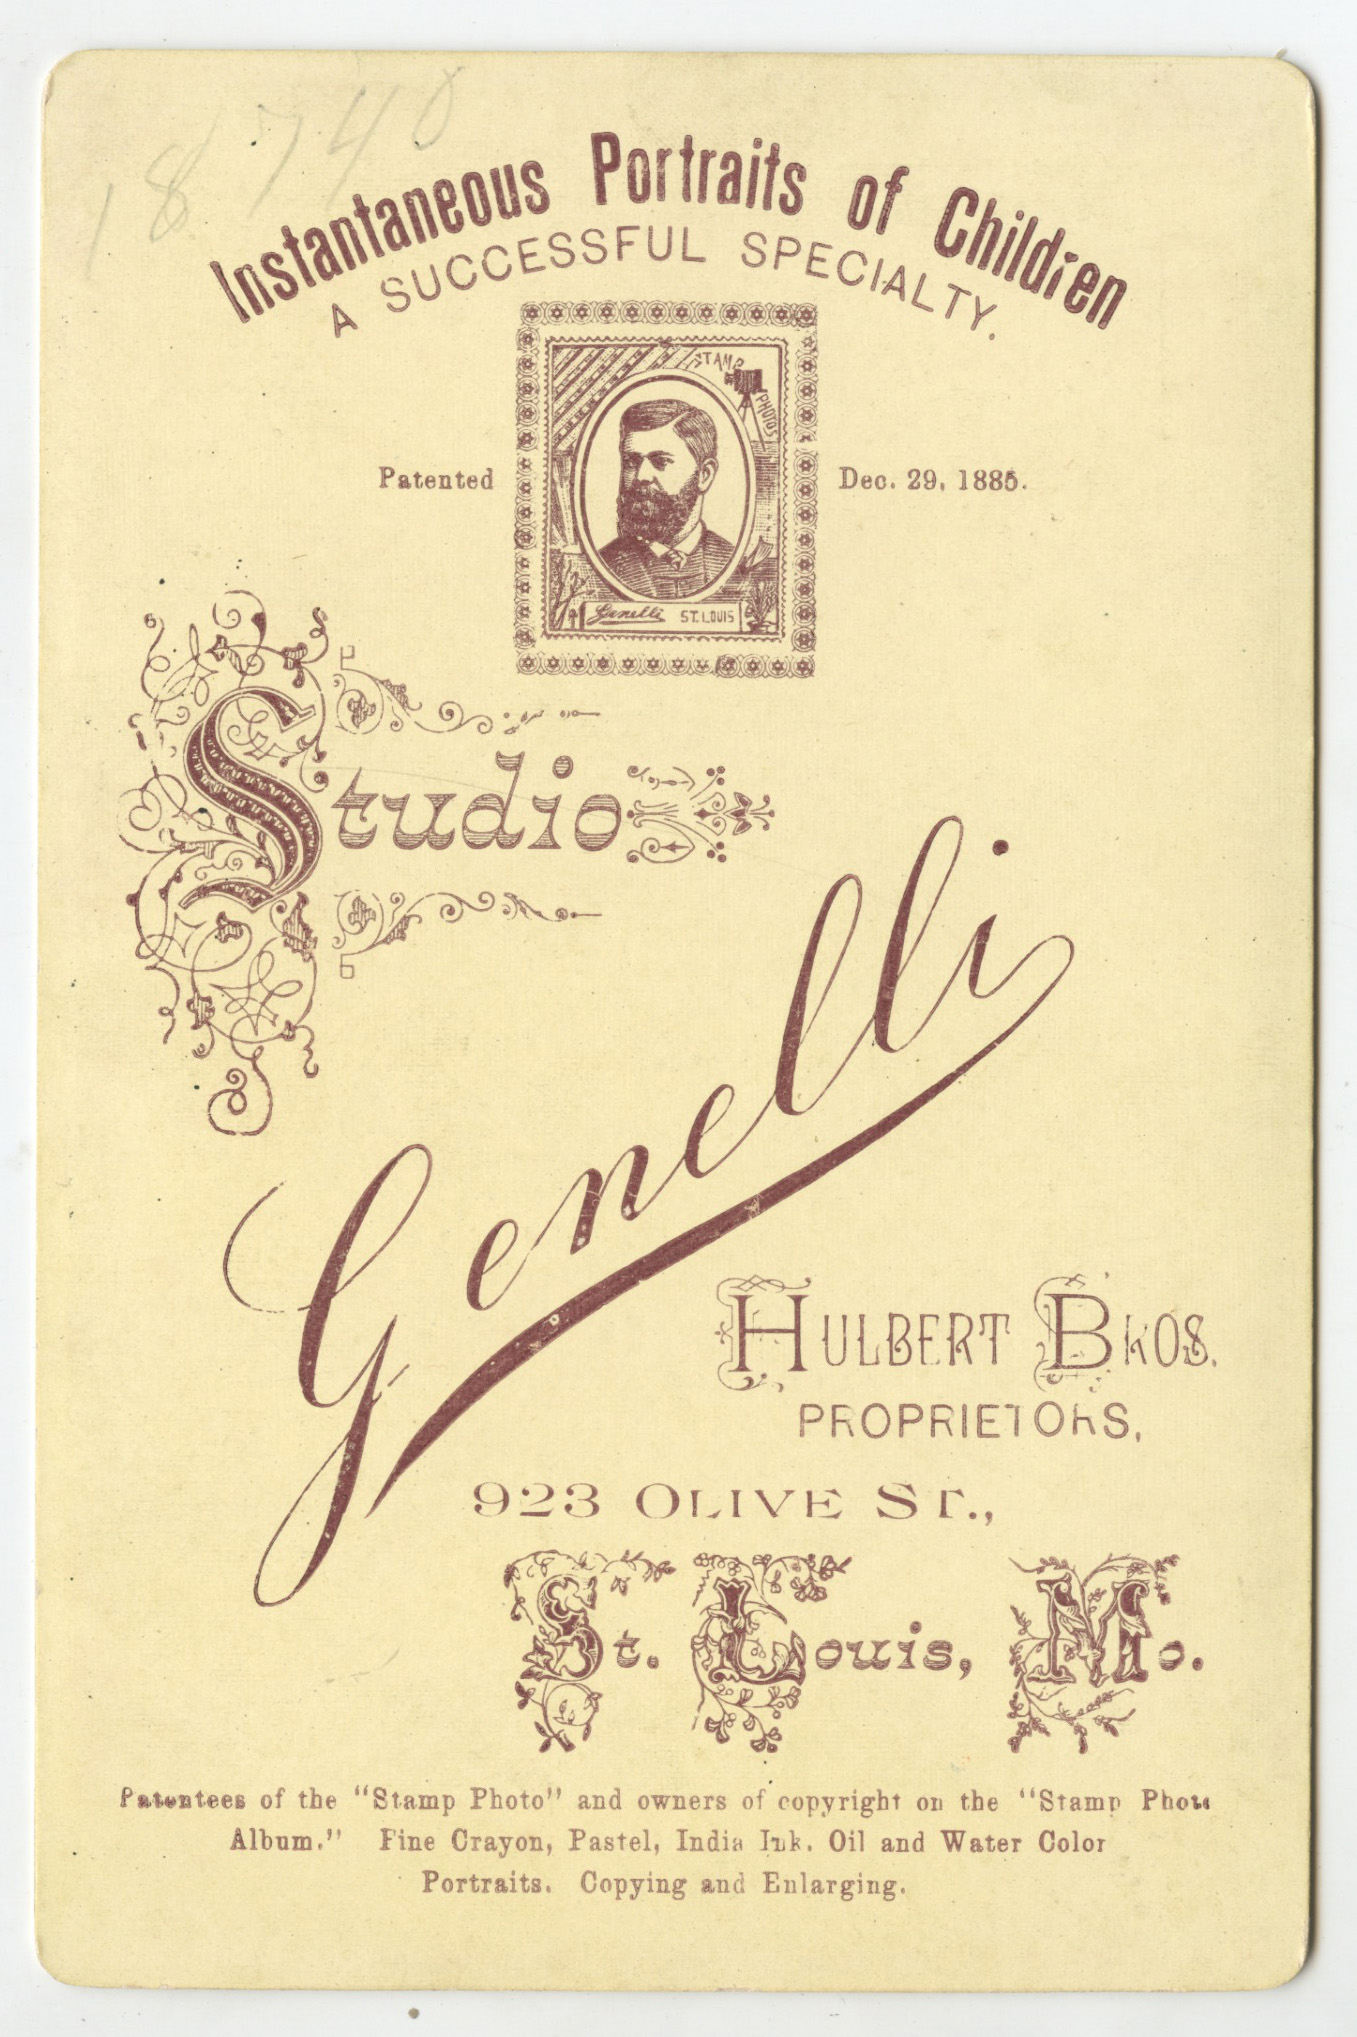 18740
Instantaneous Portraits of Children
A SUCCESSFUL SPECIALTY.
STAMP PHOTOS
Patented Dec. 29, 1885.
Genelli ST. LOUIS
Studio
Genelli
HULBERT BROS.
PROPRIETORS,
923 OLIVE ST.,
St. Louis, Mo.
Patentees of the "Stamp Photo" and owners of copyright on the "Stamp Photo
Album." Fine Crayon, Pastel, India Ink, Oil and Water Color
Portraits. Copying and Enlarging.